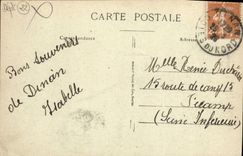 CARTE POSTALE
Correspondance
Adresse
Bons Souvenirs
de Dinan
Isabelle
Melle Renée Duchêne
15 route de cany 15
Fécamp
(Seine Inférieure)